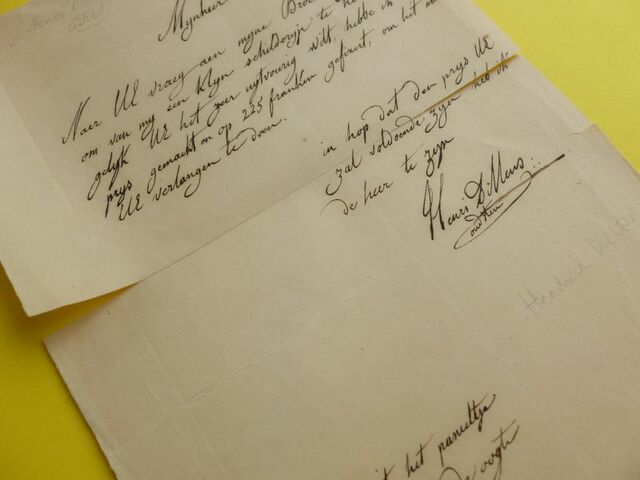 Mynheer
Naer Ul vraeg aen myne Bro
om van my een klyn schilderije te he
gelyk Ul het zeer uytvourig wilt, hebbe ik
prys gemackt en op 225 franken gefixeert, om het
Ul verlangen te doen.
in hop dat den prys Ul
zal voldoende zyn heb ik
de heer te zyn
Henri DeMeus
Hendrik
het paneeltje
de oogte